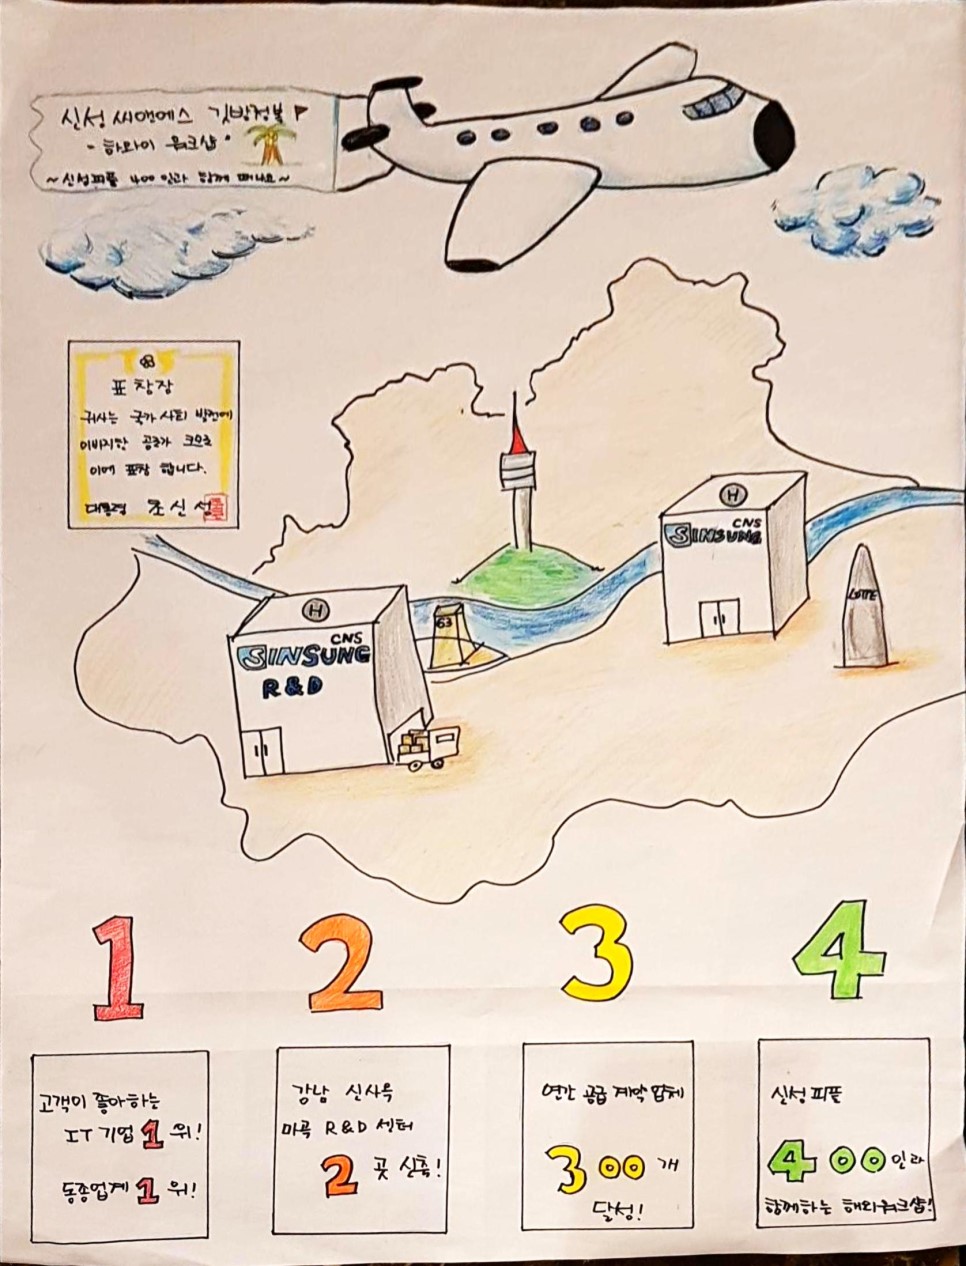 신성 씨앤에스
"하와이 워크샵"
~신성피플 400인과 함께 떠나요~
표창장
귀사는 국가 사회 발전에
이바지한 공로가 크므로
이에 표창 합니다.
대통령 조신성
CNS
SINSUNG
LOTTE
63
CNS
SINSUNG
R&D
1 2 3 4
고객이 좋아하는
IT 기업 1위!
동종업계 1위!
강남 신사옥
마곡 R&D 센터
2 곳 신축!
연간 공급 계약 업체
300개
달성!
신성 피플
400인과
함께하는 해외워크샵!
H
H